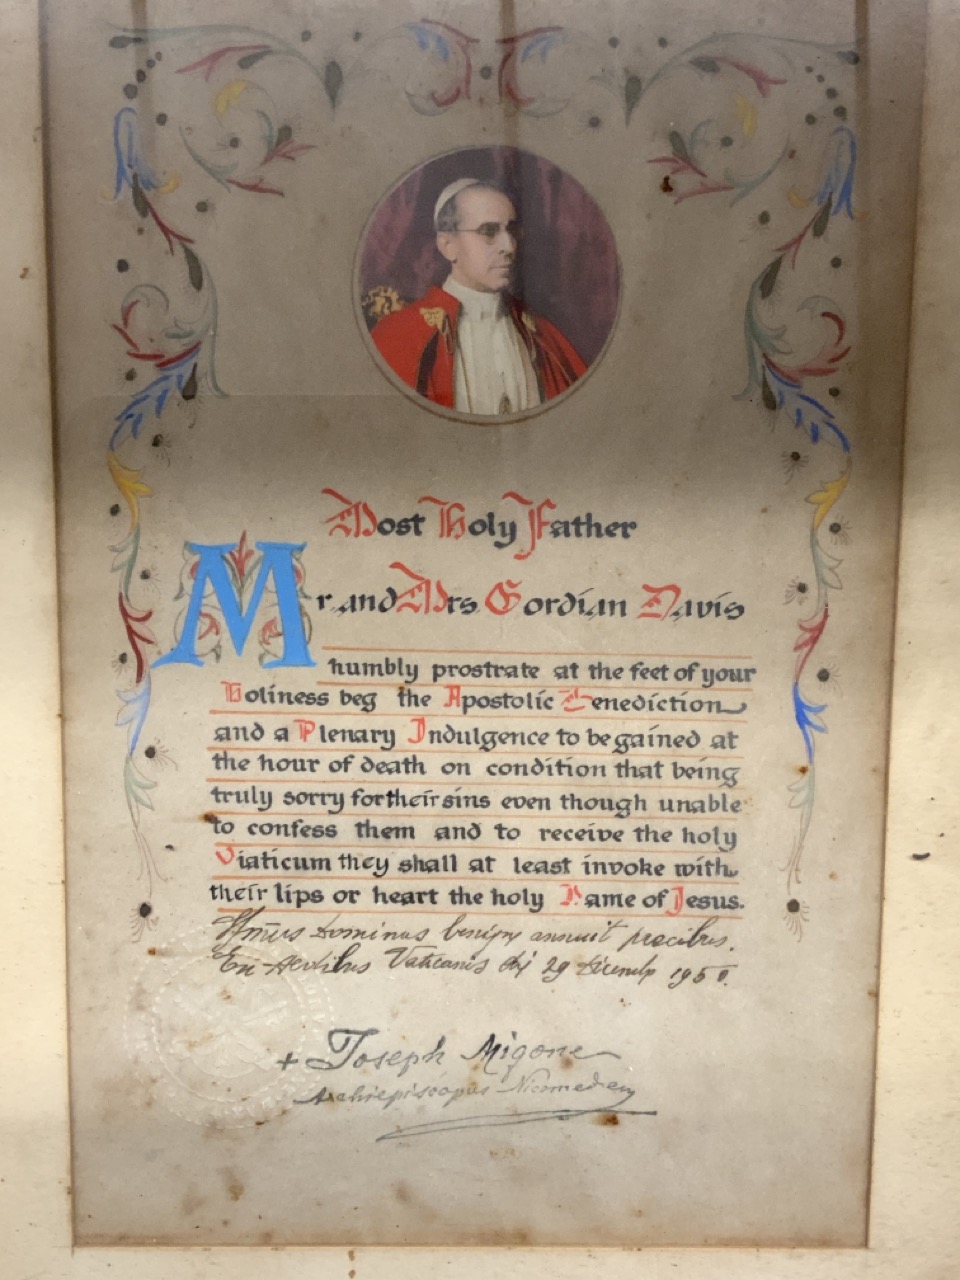 Most Holy Father
Mr. and Mrs Gordian Davis
humbly prostrate at the feet of your
Holiness beg the Apostolic Benediction
and a Plenary Indulgence to be gained at
the hour of death on condition that being
truly sorry for their sins even though unable
to confess them and to receive the holy
Viaticum they shall at least invoke with
their lips or heart the holy Name of Jesus.
Dominus benigne annuit precibus.
Ex Aedibus Vaticanis die 29 195
+ Joseph Migone
Archiepiscopus Nicomedien